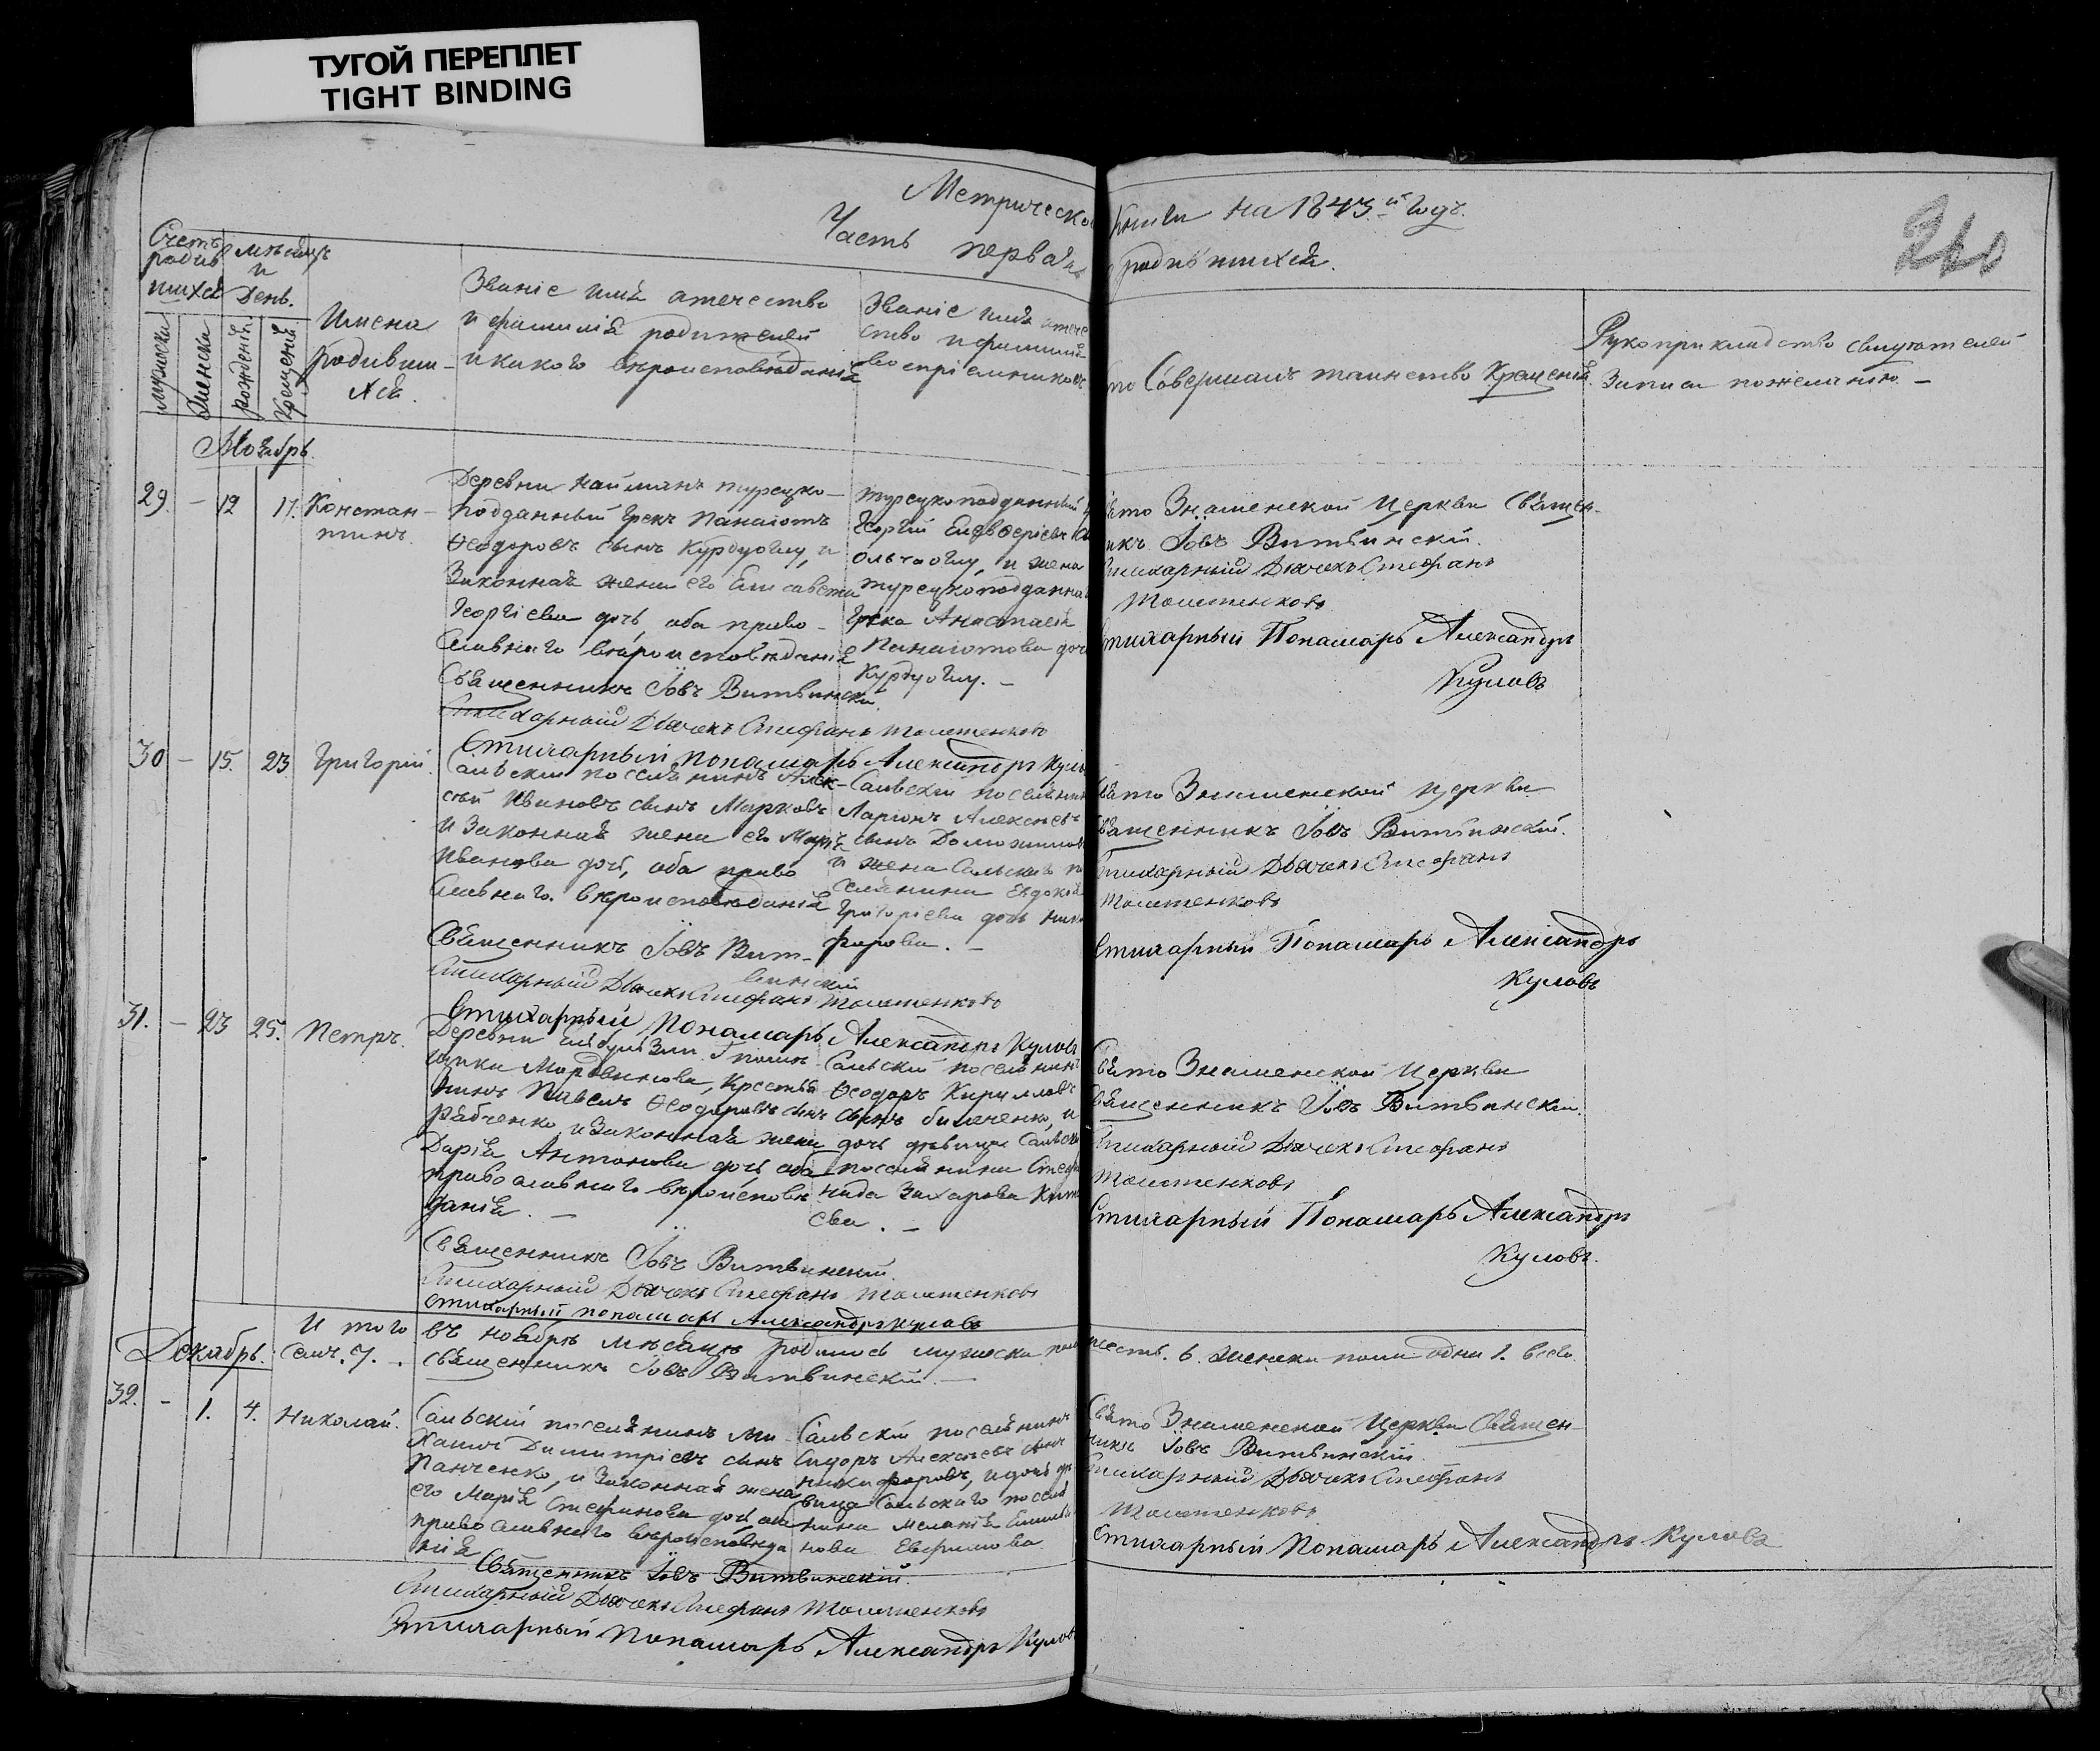 ТУГОЙ ПЕРЕПЛЕТ
TIGHT BINDING
Метрической книги на 1843й годъ.
Часть первая о родившихся.
240
Счетъ родившихся
мужеска
женска
мѣсяцъ и День.
рожденія
крещенія
Имена
родивши-
хся.
Званіе имя отечество
и фамилія родителей
и какого вѣроисповѣданія
Званіе имя отече
ство и фамилія
воспріемниковъ
кто Совершалъ таинство Крещенія.
Рукоприкладство свидѣтелей
записи по желанію. —
Ноябрь.
29. — 12 17. Констан-
тинъ.
Деревни Найманъ турецко-
подданный Грекъ Панаіотъ
Ѳеодоровъ сынъ Курдуоглу, и
Законная жена его Елисавета
Георгіева дочь, оба право-
славнаго вѣроисповѣданія
Священникъ Іовъ Витвинскій
Стихарный Дьячекъ Стефанъ
Стихарный Понамарь Александръ
турецкоподданный
Георгій
и жена
турецкоподданна
Грека Анастасія
Панаіотова дочь
Курдуоглу. —
Свято Знаменской Церкви Священ-
никъ Іовъ Витвинскій.
Стихарный Дьячекъ Стефанъ
Стихарный Понамарь Александръ
Куловъ
30 — 15. 23 Григорій.
Сальскій поселянинъ Алек-
сѣй Ивановъ сынъ Марковъ
и Законная жена его Марія
Иванова дочь, оба право
славнаго вѣроисповѣданія
Священникъ Іовъ Вит-
винскій
Стихарный Дьячекъ Стефанъ
Стихарный Понамарь Александръ Куловъ
поселянин
Ларіонъ Алексѣевъ
сынъ
и жена
селянина Евдокія
Григоріева дочь Ники
форова. —
Свято Знаменской Церкви
Священникъ Іовъ Витвинскій.
Стихарный Дьячекъ Стефанъ
Стихарный Понамарь Александръ
Куловъ
31. — 23 25. Петръ.
Деревни
щика Мордвинова, Крестья
нинъ Павелъ Ѳеодоровъ сынъ
Рябченко и Законная жена
Дарія Антонова дочь, оба
православнаго вѣроисповѣ
данія. —
Священникъ Іовъ Витвинскій.
Стихарный Дьячекъ Стефанъ
Стихарный Понамарь Александръ Куловъ
поселянинъ
Ѳеодоръ Кирилловъ
сынъ Биличенко, и
дочь дѣвица
поселянина Стефа
нида Захарова
ева. —
Свято Знаменской Церкви
Священникъ Іовъ Витвинскій.
Стихарный Дьячекъ Стефанъ
Стихарный Понамарь Александръ
Куловъ.
И того въ ноябрѣ мѣсяцѣ родилось мужеска пола шесть. 6. женска пола одна 1. всего
7. Священникъ Іовъ Витвинскій. —
Декабрь.
32. — 1. 4. Николай.
Сальскій поселянинъ Ми
хаилъ Димитріевъ сынъ
Панченко, и Законная жена
его Марія Стефанова дочь, оба
православнаго вѣроисповѣда
нія
Священникъ Іовъ Витвинскій.
Стихарный Дьячекъ Стефанъ
Стихарный Понамарь Александръ Куловъ
Сальскій поселянинъ
Сидоръ Алексѣевъ сынъ
Никифоровъ, и дочь дѣ
вица Сальскаго посел
янина Меланія
нова Ефимова
Свято Знаменской Церкви Священ-
никъ Іовъ Витвинскій.
Стихарный Дьячекъ Стефанъ
Стихарный Понамарь Александръ Куловъ